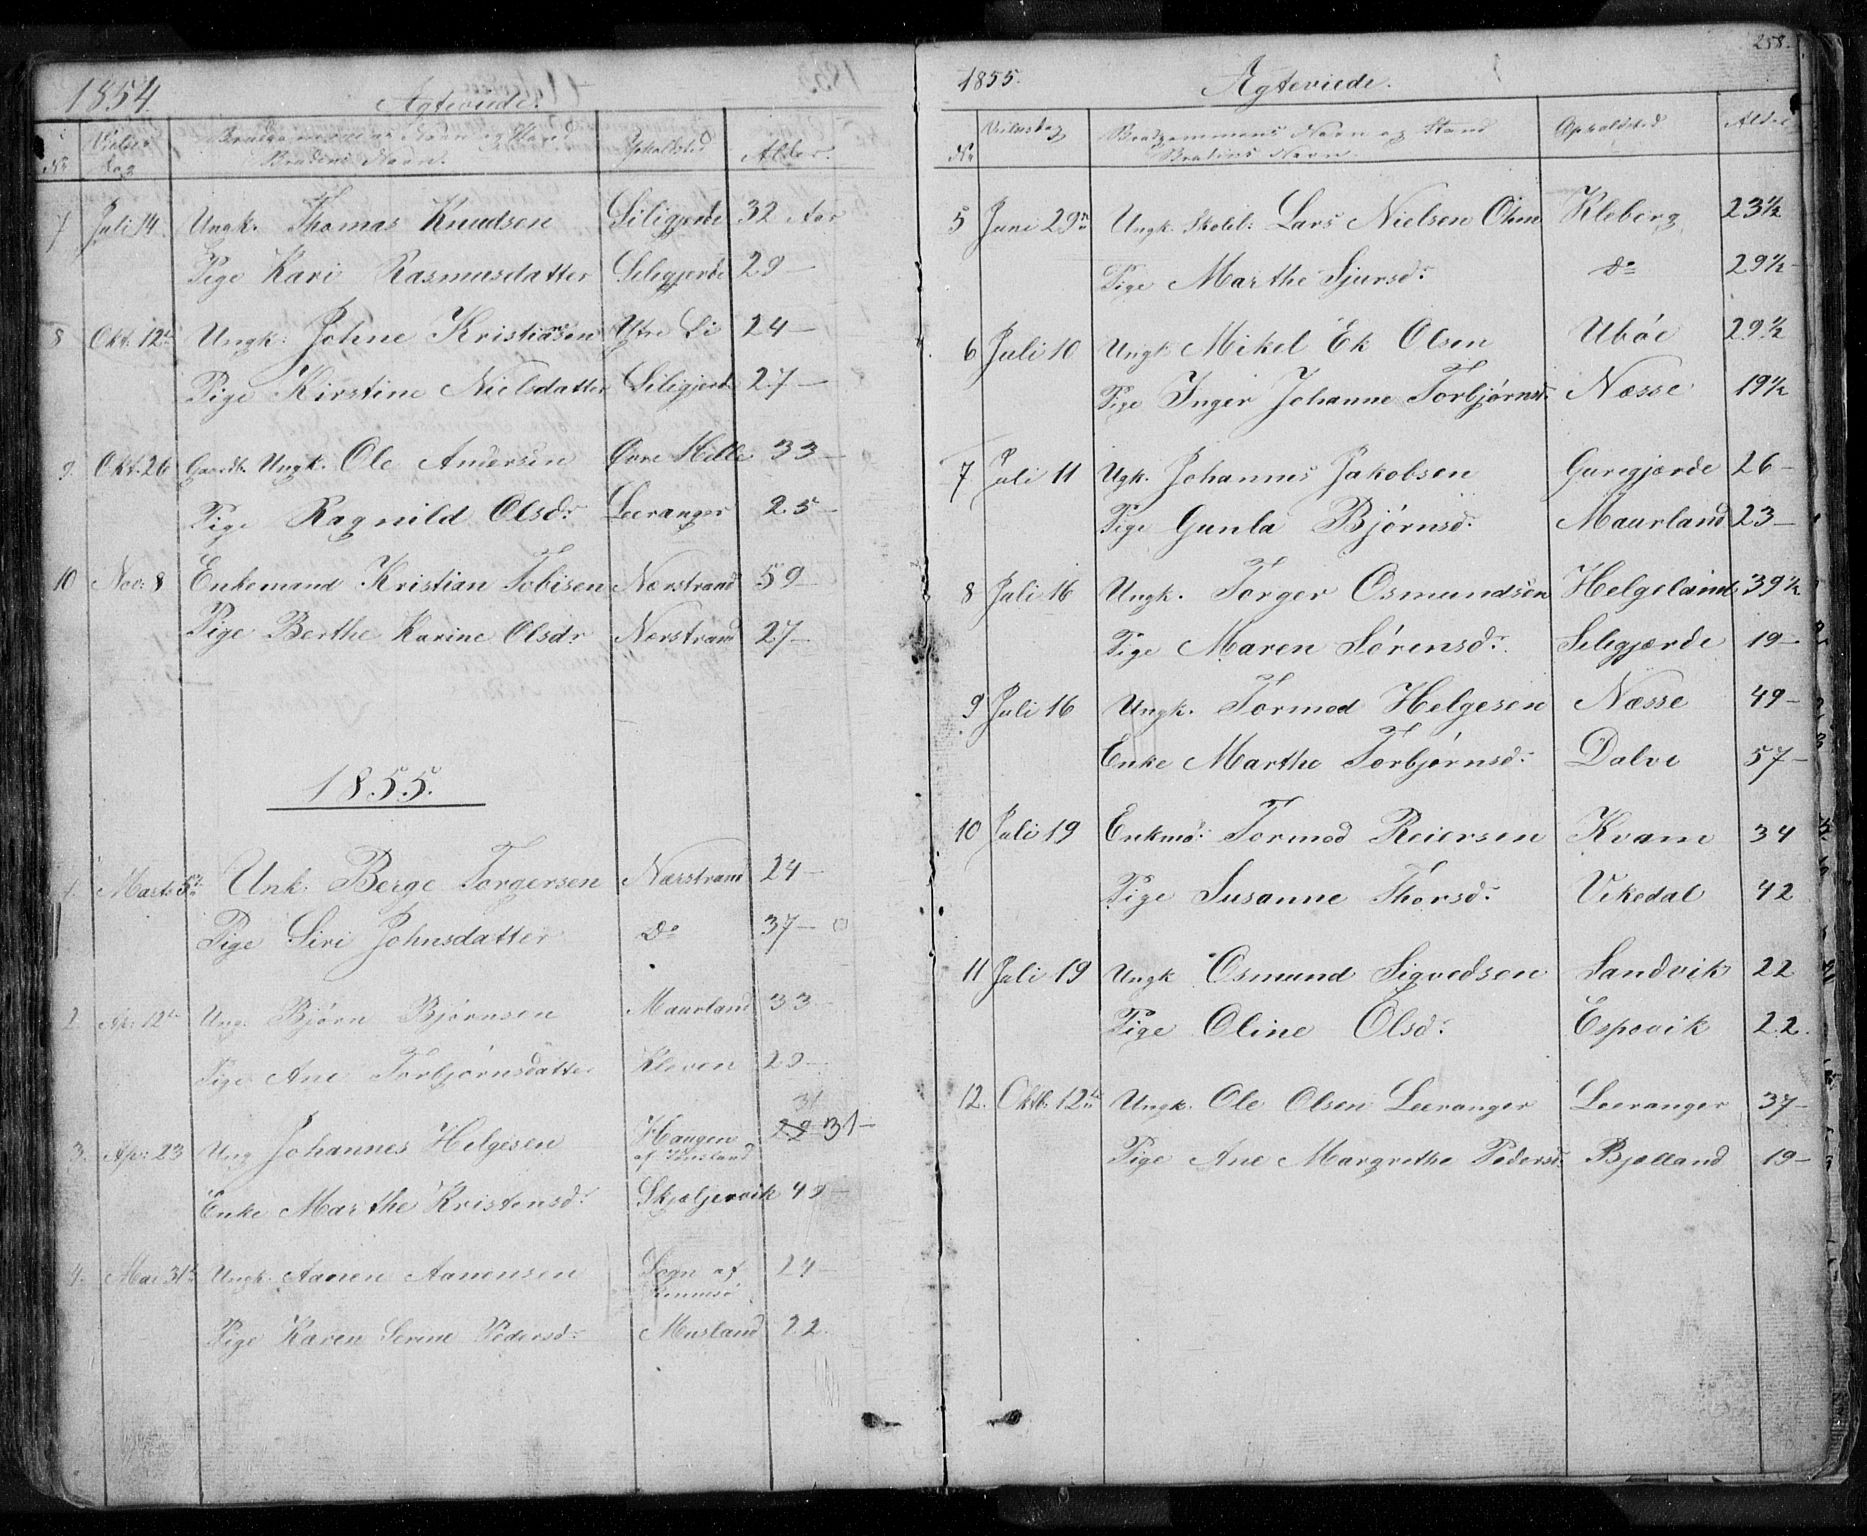 1854.
Ægteviede.
No Vielses Dag Brudgommens Navn og Stand Opholdsted Alder.
Brudens Navn.
7 Juli 14. Ungk. Thomas Knudsen Siligjerde 32 Aar
Pige Kari Rasmusdatter Seligjerde 29 —
8 Okt. 12te Ungk. Johne Kristiansen Ytre Li 24 —
Pige Kirstine Nielsdatter Siligjerde 27 —
9. Okt. 26 Gaardb. Ungk. Ole Andersen Øvre Hille 33 —
Pige Ragnild Olsdr Leeranger 25 —
10 Nov: 8 Enkemand Kristian Tobisen Nærstrand 59 —
Pige Berthe Karine Olsdr Nerstrand 27 —
1855.
1. Marts 5te Unk. Berge Torgersen Nærstrand 24 —
Pige Siri Johnsdatter do 37 —
2. Ap: 12te Ung. Bjørn Bjørnsen Maurland 33 —
Pige Ane Torbjørnsdatter Kleven 29 —
31
3. Ap: 23 Ung. Johannes Helgesen Haugen 29 31 —
Enke Marthe Kristensdr Skjøljervik 49 —
4. Mai 31te Ungk. Aanen Aanensen Sogn af 24 —
Pige Karen Serine Pedersdr Musland 22.
258.
1855.
Ægteviede.
No Vielsesdag Brudgommens Navn og Stand Opholdsted Alder
Brudens Navn.
5 Juni 29de Ungk. Skolel: Lars Nielsen Ohm Kleberg 23½
Pige Marthe Sjursdr do 29½ —
6 Juli 10 Ungk Mikel Ek Olsen Ubøe 29½
Pige Inger Johanne Torbjørnsdr Næsse 19½
7 Juli 11 Ugk. Johannes Jakobsen Guregjærde 26 —
Pige Gunla Bjørnsdr Maurland 23 —
8 Juli 16 Ungk. Torger Osmundsen Helgeland 39½
Pige Maren Sørensdr Seligjærde 19 —
9 Juli 16 Ungk. Tormod Helgesen Næsse 49 —
Enke Marthe Torbjørnsdr Dalve 57 —
10 Juli 19 Enkmd: Tormod Reiersen Kvam 34
Pige Susanne Thorsdr Vikedal 42
11 Juli 19 Ungk Osmund Sigvedsen Sandvik 22
Pige Oline Olsdr Espevik 22.
12. Oktb. 12te Ungk. Ole Olsen Leeranger Leeranger 37 —
Pige Ane Margrethe Pedersdr Bjelland 19 —